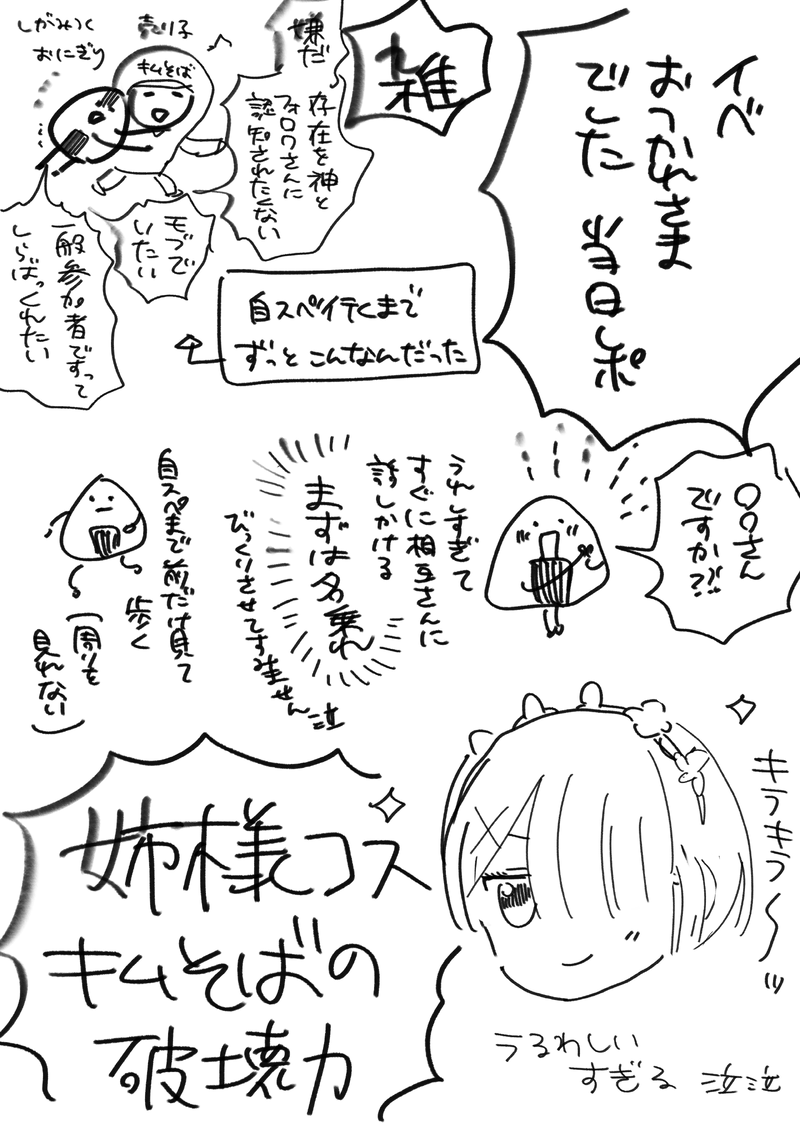 イベ
おつかれさま
でした 当日レポ
雑
嫌だ
存在を神と
フォロワさんに
認知されたくない
売り子
キムそば
しがみつく
おにぎり
モブで
いたい
一般参加者ですって
しらばっくれたい
自スペ行くまで
ずっとこんなんだった
〇〇さん
ですか?!
うれしすぎて
すぐに相互さんに
話しかける
まずは名乗れ
びっくりさせてすみません泣
自スペまで前だけ見て
歩く
(周りを
見れない)
姉様コス
キムそばの
破壊力
キラキラ〜ッ
うるわしい
すぎる 泣泣